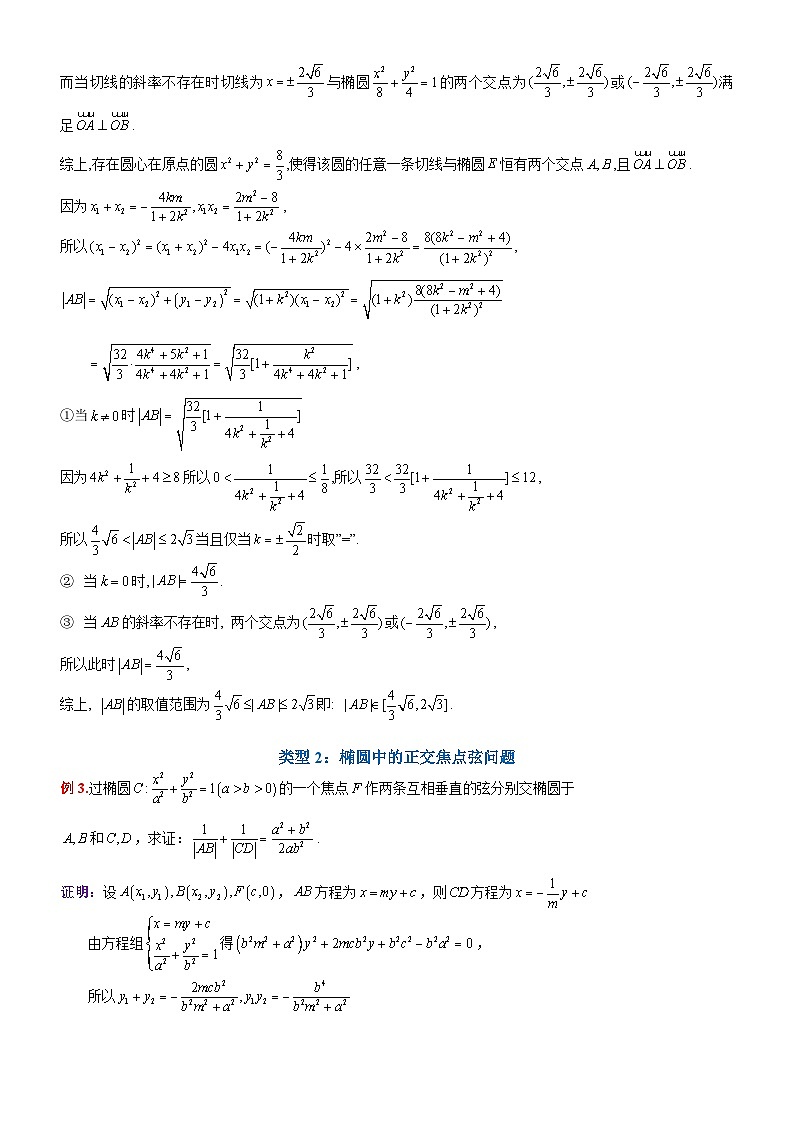 而当切线的斜率不存在时切线为 $x=\pm\frac{2\sqrt{6}}{3}$ 与椭圆 $\frac{x^2}{8}+\frac{y^2}{4}=1$ 的两个交点为 $(\frac{2\sqrt{6}}{3},\pm\frac{2\sqrt{6}}{3})$ 或 $(-\frac{2\sqrt{6}}{3},\pm\frac{2\sqrt{6}}{3})$ 满
足 $\overrightarrow{OA}\perp\overrightarrow{OB}$ .
综上,存在圆心在原点的圆 $x^2+y^2=\frac{8}{3}$ ,使得该圆的任意一条切线与椭圆 $E$ 恒有两个交点 $A,B$ ,且 $\overrightarrow{OA}\perp\overrightarrow{OB}$ .
因为 $x_1+x_2=-\frac{4km}{1+2k^2},x_1x_2=\frac{2m^2-8}{1+2k^2}$ ,
所以 $(x_1-x_2)^2=(x_1+x_2)^2-4x_1x_2=(-\frac{4km}{1+2k^2})^2-4\times\frac{2m^2-8}{1+2k^2}=\frac{8(8k^2-m^2+4)}{(1+2k^2)^2}$ ,
$|AB|=\sqrt{(x_1-x_2)^2+(y_1-y_2)^2}=\sqrt{(1+k^2)(x_1-x_2)^2}=\sqrt{(1+k^2)\frac{8(8k^2-m^2+4)}{(1+2k^2)^2}}$
$=\sqrt{\frac{32}{3}\cdot\frac{4k^4+5k^2+1}{4k^4+4k^2+1}}=\sqrt{\frac{32}{3}[1+\frac{k^2}{4k^4+4k^2+1}]}$ ,
①当 $k\neq0$ 时 $|AB|=\sqrt{\frac{32}{3}[1+\frac{1}{4k^2+\frac{1}{k^2}+4}]}$
因为 $4k^2+\frac{1}{k^2}+4\geq8$ 所以 $0<\frac{1}{4k^2+\frac{1}{k^2}+4}\leq\frac{1}{8}$ ,所以 $\frac{32}{3}<\frac{32}{3}[1+\frac{1}{4k^2+\frac{1}{k^2}+4}]\leq12$ ,
所以 $\frac{4}{3}\sqrt{6}<|AB|\leq2\sqrt{3}$ 当且仅当 $k=\pm\frac{\sqrt{2}}{2}$ 时取”=”.
② 当 $k=0$ 时, $|AB|=\frac{4\sqrt{6}}{3}$ .
③ 当 $AB$ 的斜率不存在时, 两个交点为 $(\frac{2\sqrt{6}}{3},\pm\frac{2\sqrt{6}}{3})$ 或 $(-\frac{2\sqrt{6}}{3},\pm\frac{2\sqrt{6}}{3})$ ,
所以此时 $|AB|=\frac{4\sqrt{6}}{3}$ ,
综上, $|AB|$ 的取值范围为 $\frac{4}{3}\sqrt{6}\leq|AB|\leq2\sqrt{3}$ 即: $|AB|\in[\frac{4}{3}\sqrt{6},2\sqrt{3}]$ .
类型 2：椭圆中的正交焦点弦问题
例 3.过椭圆 $C:\frac{x^2}{a^2}+\frac{y^2}{b^2}=1(a>b>0)$ 的一个焦点 $F$ 作两条互相垂直的弦分别交椭圆于
$A,B$ 和 $C,D$ ，求证: $\frac{1}{|AB|}+\frac{1}{|CD|}=\frac{a^2+b^2}{2ab^2}$ .
证明: 设 $A(x_1,y_1),B(x_2,y_2),F(c,0)$ ， $AB$ 方程为 $x=my+c$ ，则 $CD$ 方程为 $x=-\frac{1}{m}y+c$
由方程组 $\begin{cases}x=my+c\\\frac{x^2}{a^2}+\frac{y^2}{b^2}=1\end{cases}$ 得 $(b^2m^2+a^2)y^2+2mcb^2y+b^2c^2-b^2a^2=0$ ，
所以 $y_1+y_2=-\frac{2mcb^2}{b^2m^2+a^2},y_1y_2=-\frac{b^4}{b^2m^2+a^2}$